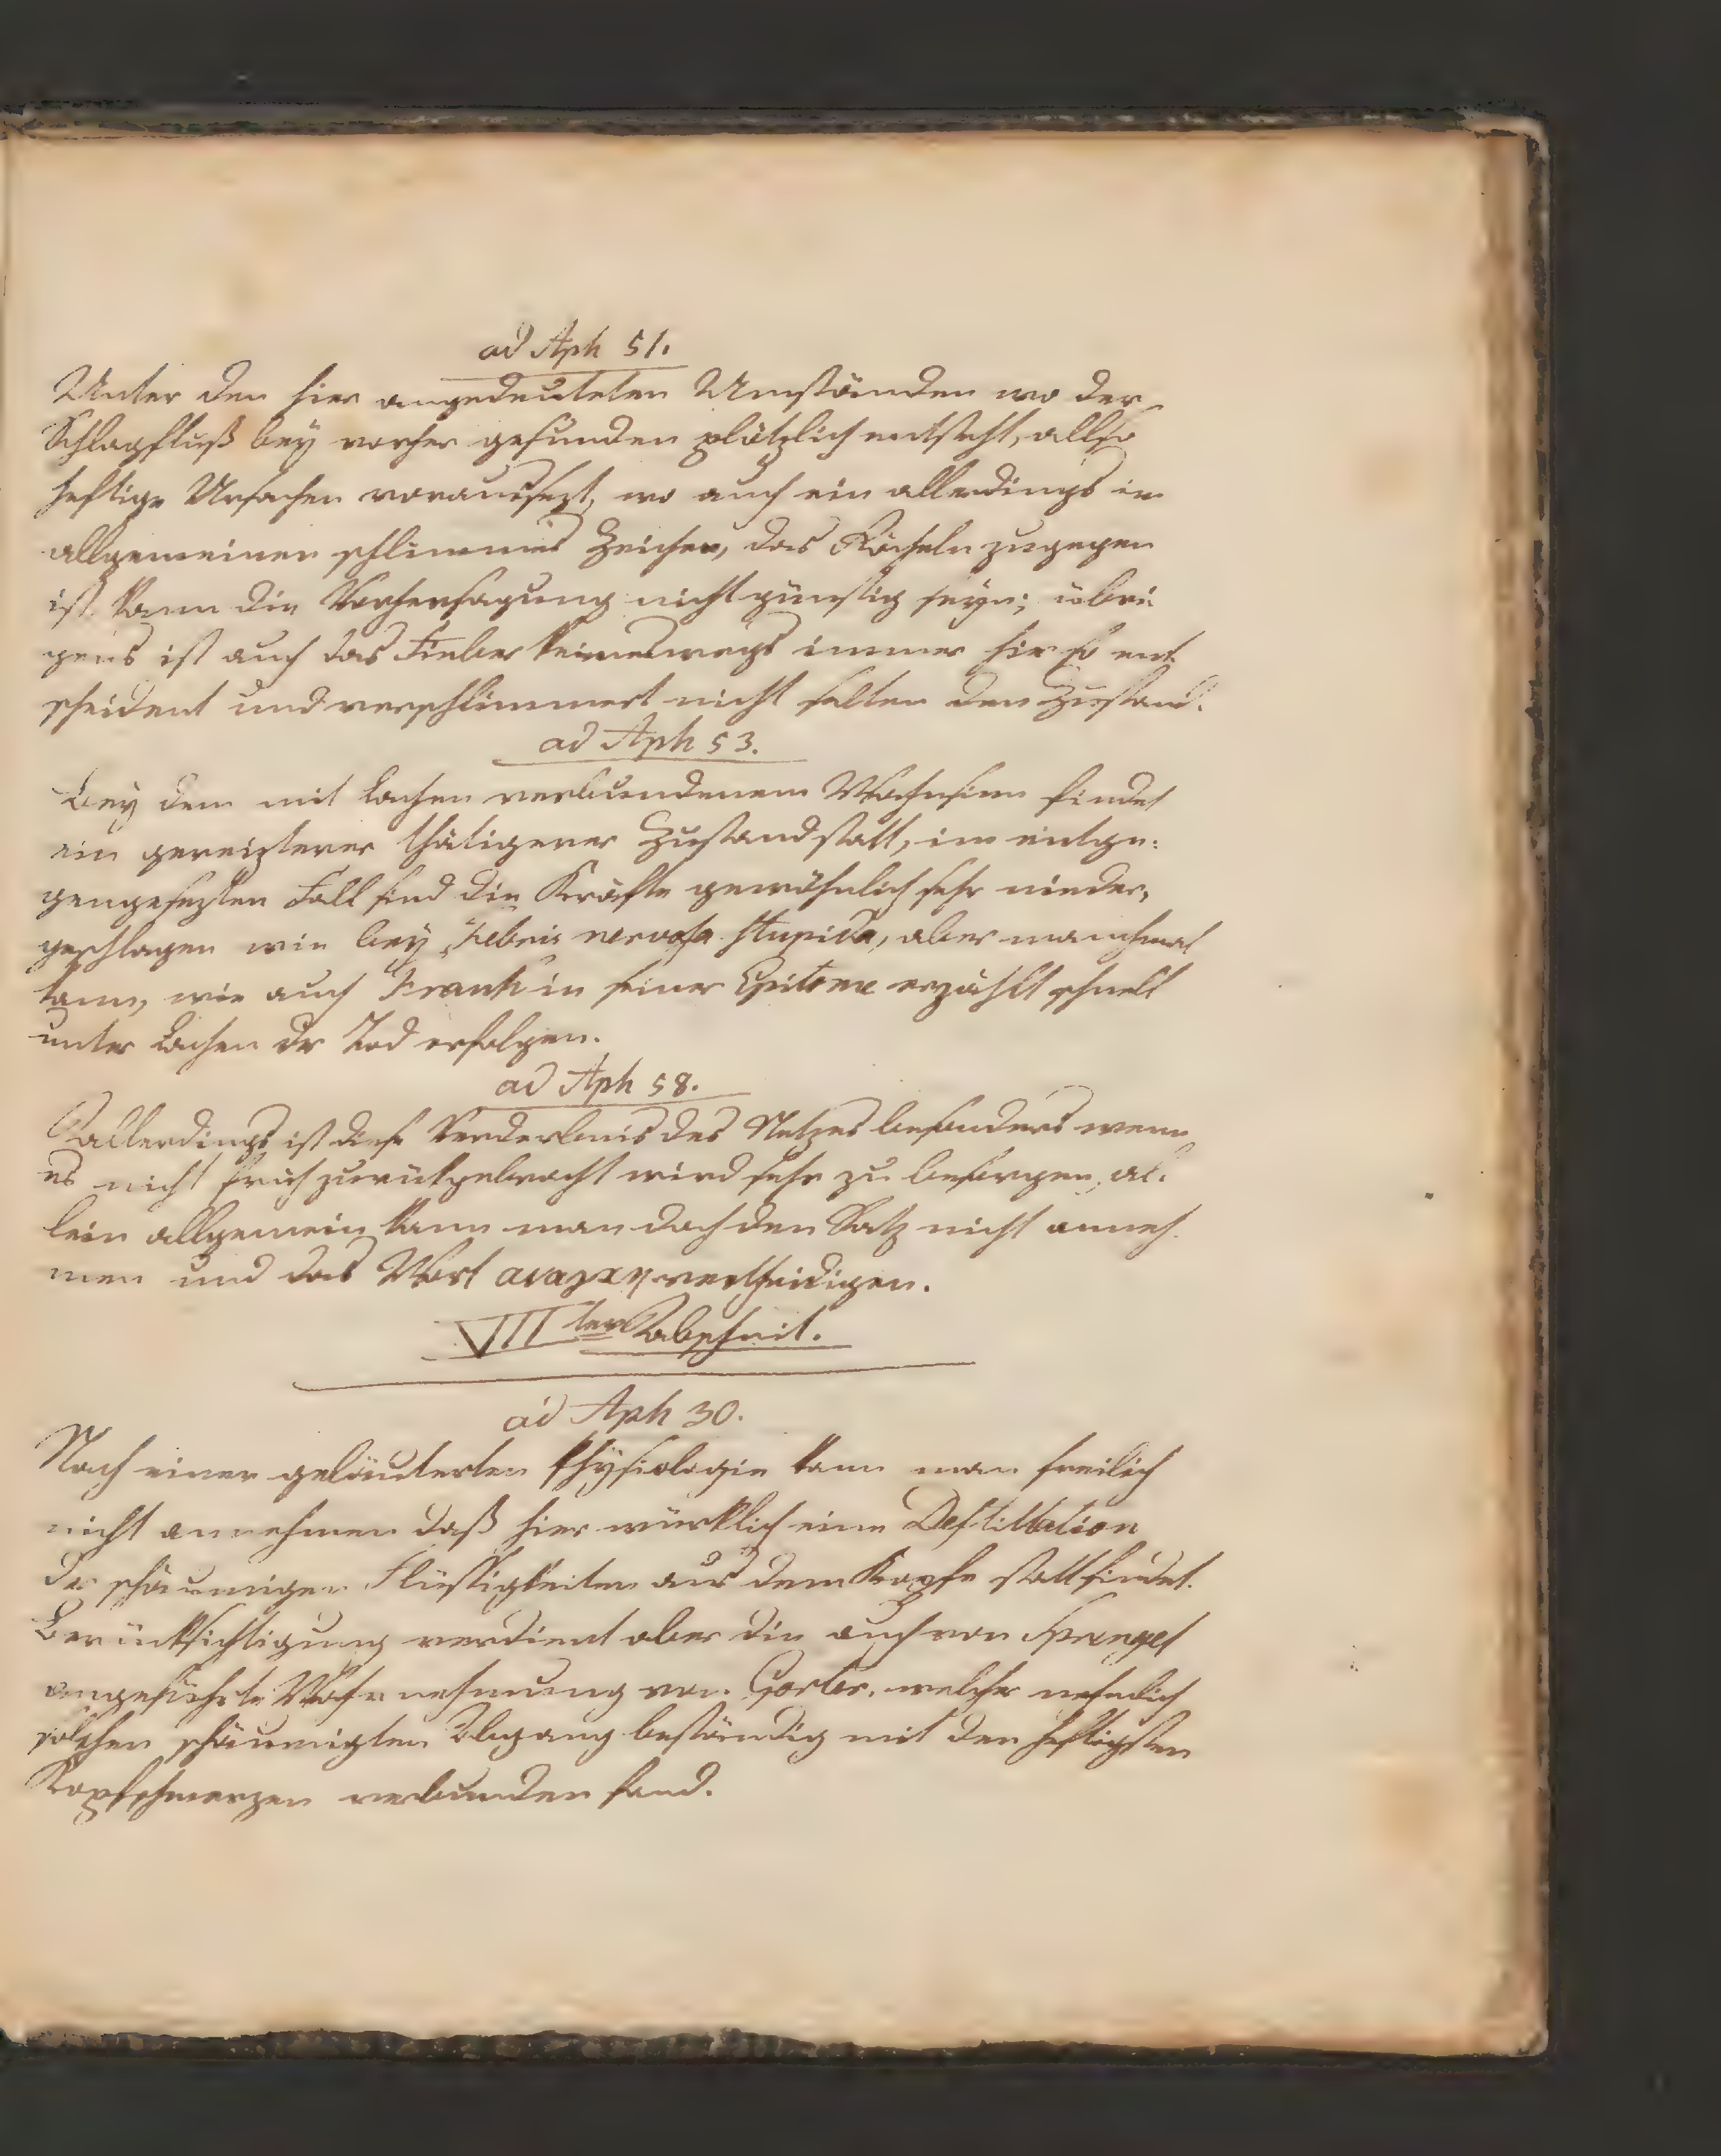 ad Aph 51.
Unter den hier angedeuteten Umständen wo der
Schlagfluß bey vorher gesunden plötzlich entsteht, allso
heftige Ursachen voraussezt, wo auch ein allerdings im
allgemeinen schlimmes Zeichen, das Röcheln zugegen
ist kann die Vorhersagung nicht günstig seyn; übri
gens ist auch das Fieber keineswegs immer hier so ent
scheident und verschlimmert nicht selten den Zustand.
ad Aph 53.
Bey dem mit Lachen verbundenem Wahnsinn findet
ein gereizterer thätigerer Zustand statt, im entge:
gengesezten Fall sind die Kräfte gewöhnlich sehr nieder,
geschlagen wie bey Febris nervosa stupida, aber manchmal
kann, wie auch Frank in seiner Epitome erzählt schnell
unter Lachen der Tod erfolgen.
ad Aph 58.
Allerdings ist diese Verderbnis des Netzes besonders wenn
es nicht früh zurükgebracht wird sehr zu besorgen, al.
lein allgemein kann man doch den Satz nicht anneh.
men und das Wort αναγκη vertheidigen.
VIIter Abschnit.
ad Aph 30.
Nach einer geläuterten Physiologie kann man freilich
nicht annehmen daß hier würklich eine Destillation
der schäumigen Flüssigkeiten aus dem Kopfe statt findet.
Berücksichtigung verdient aber die auch von Sprengel
angeführte Wahrnehmung von Gorter, welcher nehmlich
solchen schäumigten Abgang beständig mit den heftigsten
Kopfschmerzen verbunden fand.